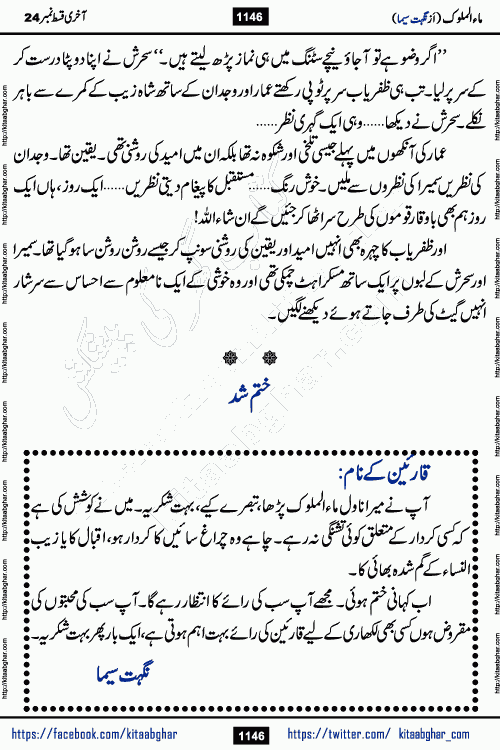 ماء الملوک (از نگہت سیما) 1146 آخری قسط نمبر 24
’’اگر وضو ہے تو آ جاؤ نیچے سٹنگ میں ہی نماز پڑھ لیتے ہیں۔‘‘ سحرش نے اپنا دوپٹا درست کر
کے سر پر لیا۔ تب ہی ظفریاب سر پر ٹوپی رکھتے عمار اور وجدان کے ساتھ شاہ زیب کے کمرے سے باہر
نکلے۔ سحرش نے دیکھا......وہی ایک گہری نظر......
عمار کی آنکھوں میں پہلے جیسی تلخی اور شکوہ نہ تھا بلکہ ان میں امید کی روشنی تھی۔ یقین تھا۔ وجدان
کی نظریں سمیرا کی نظروں سے ملیں۔ خوش رنگ......مستقبل کا پیغام دیتی نظریں......ایک روز، ہاں ایک
روز ہم بھی باوقار قوموں کی طرح سر اٹھا کر جئیں گے ان شاء اللہ!
اور ظفریاب کا چہرہ بھی انہیں امید اور یقین کی روشنی سونپ کر جیسے روشن روشن سا ہو گیا تھا۔ سمیرا
اور سحرش کے لبوں پر ایک ساتھ مسکراہٹ چمکی تھی اور وہ خوشی کے ایک نامعلوم سے احساس سے سرشار
انہیں گیٹ کی طرف جاتے ہوئے دیکھنے لگیں۔
ختم شد
قارئین کے نام:
آپ نے میرا ناول ماء الملوک پڑھا، تبصرے کیے، بہت شکریہ۔ میں نے کوشش کی ہے
کہ کسی کردار کے متعلق کوئی تشنگی نہ رہے۔ چاہے وہ چراغ سائیں کا کردار ہو، اقبال کا یا زیب
النساء کے گم شدہ بھائی کا۔
اب کہانی ختم ہوئی۔ مجھے آپ سب کی رائے کا انتظار رہے گا۔ آپ سب کی محبتوں کی
مقروض ہوں کسی بھی لکھاری کے لیے قارئین کی رائے بہت اہم ہوتی ہے، ایک بار پھر بہت شکریہ۔
نگہت سیما
https://facebook.com/kitaabghar 1146 https://twitter.com/ kitaabghar_com
http://kitaabghar.com